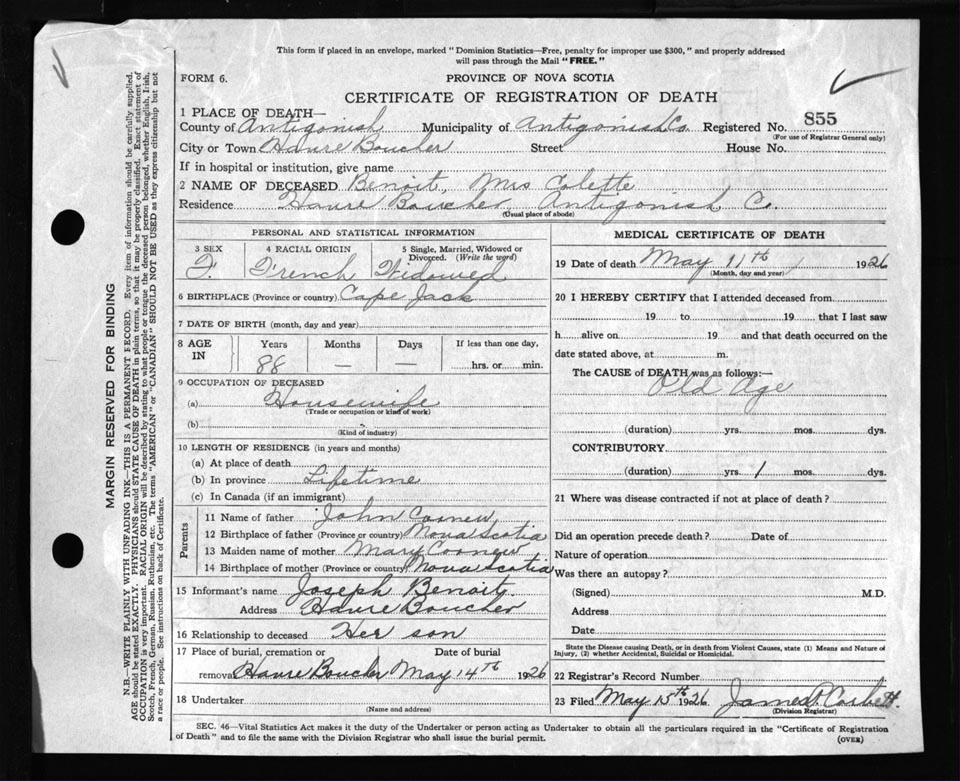 This form if placed in an envelope, marked "Dominion Statistics—Free, penalty for improper use $300," and properly addressed
will pass through the Mail "FREE."
FORM 6.
PROVINCE OF NOVA SCOTIA
CERTIFICATE OF REGISTRATION OF DEATH
1 PLACE OF DEATH—
County of Antigonish Municipality of Antigonish Co Registered No. 855
(For use of Registrar General only)
City or Town Havre Boucher Street House No.
If in hospital or institution, give name
2 NAME OF DECEASED Benoit, Mrs Colette
Residence Havre Boucher Antigonish Co.
(Usual place of abode)
PERSONAL AND STATISTICAL INFORMATION
3 SEX 4 RACIAL ORIGIN 5 Single, Married, Widowed or
Divorced. (Write the word)
F. French Widowed
6 BIRTHPLACE (Province or country) Cape Jack
7 DATE OF BIRTH (month, day and year)
8 AGE IN Years Months Days If less than one day,
88 — — hrs. or min.
9 OCCUPATION OF DECEASED
(a) Housewife
(Trade or occupation or kind of work)
(b)
(Kind of industry)
10 LENGTH OF RESIDENCE (in years and months)
(a) At place of death
(b) In province Lifetime
(c) In Canada (if an immigrant)
Parents
11 Name of father John
12 Birthplace of father (Province or country) Nova Scotia
13 Maiden name of mother Mary
14 Birthplace of mother (Province or country) Nova Scotia
15 Informant's name Joseph Benoit
Address Havre Boucher
16 Relationship to deceased Her son
17 Place of burial, cremation or Date of burial
removal Havre Boucher May 14th 1926
18 Undertaker
(Name and address)
MEDICAL CERTIFICATE OF DEATH
19 Date of death May 11th 1926
(Month, day and year)
20 I HEREBY CERTIFY that I attended deceased from
19 to 19 that I last saw
h alive on 19 and that death occurred on the
date stated above, at m.
The CAUSE of DEATH was as follows:—
Old Age
(duration) yrs. mos. dys.
CONTRIBUTORY
(duration) yrs. mos. dys.
21 Where was disease contracted if not at place of death?
Did an operation precede death? Date of
Nature of operation
Was there an autopsy?
(Signed) M.D.
Address
Date
State the Disease causing Death, or in death from Violent Causes, state (1) Means and Nature of
Injury, (2) whether Accidental, Suicidal or Homicidal.
22 Registrar's Record Number
23 Filed May 15th 1926 James P. Corbett.
(Division Registrar)
SEC. 46—Vital Statistics Act makes it the duty of the Undertaker or person acting as Undertaker to obtain all the particulars required in the "Certificate of Registration
of Death" and to file the same with the Division Registrar who shall issue the burial permit.
(OVER)
MARGIN RESERVED FOR BINDING
N.B.—WRITE PLAINLY WITH UNFADING INK—THIS IS A PERMANENT RECORD. Every item of information should be carefully supplied.
AGE should be stated EXACTLY. PHYSICIANS should STATE CAUSE OF DEATH in plain terms, so that it may be properly classified. Exact statement of
OCCUPATION is very important. RACIAL ORIGIN will be described by stating to what people or tongue the deceased person belonged, whether English, Irish,
Scotch, French, German, Russian, Ruthenian, etc. The terms "AMERICAN" or "CANADIAN" SHOULD NOT BE USED as they express citizenship but not
a race or people. See instructions on back of Certificate.